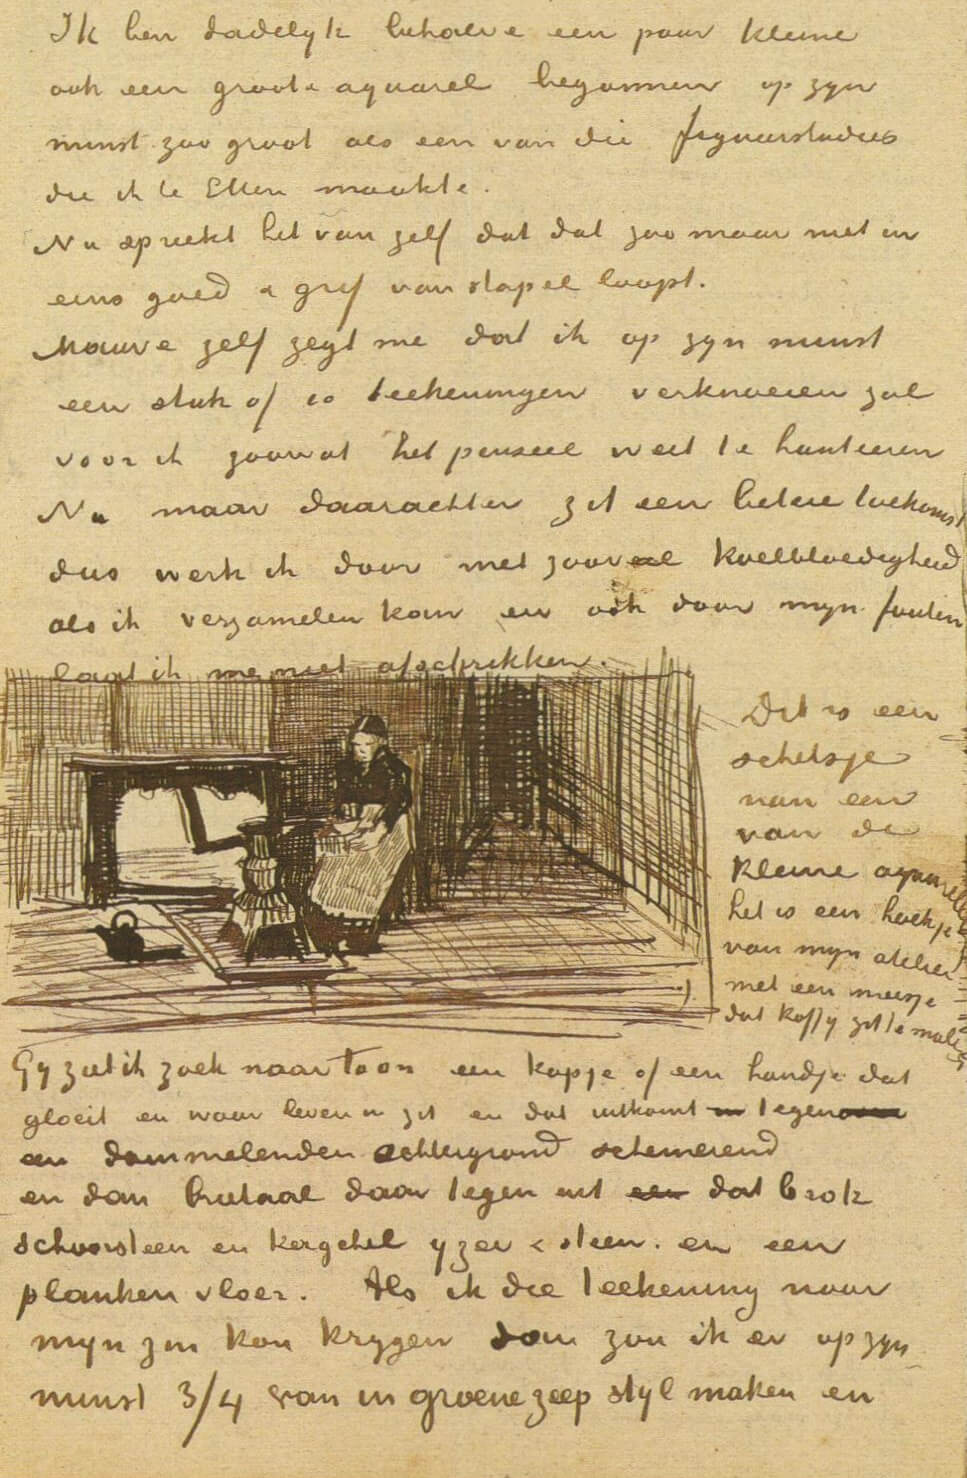 Ik ben dadelyk behalve een paar kleine
ook een groote aquarel begonnen op zyn
minst zoo groot als een van die figuurstudies
die ik te Etten maakte.
Nu spreekt het van zelf dat dat zoo maar niet in
eens goed & grif van stapel loopt.
Mauve zelf zegt me dat ik op zyn minst
een stuk of 10 teekeningen verknoeien zal
voor ik zoowat het penseel weet te hanteeren
Nu maar daarachter zit een betere toekomst
dus werk ik door met zooveel koelbloedigheid
als ik verzamelen kan en ook door myn fouten
laat ik me niet afschrikken.
Dit is een
schetsje
van een
van de
kleine aquarellen
het is een hoekje
van myn atelier
met een meisje
dat koffy zit te malen
Gy ziet ik zoek naar toon een kopje of een handje dat
gloeit en waar leven in zit en dat uitkomt tegen
een dommelenden achtergrond schemerend
en dan brutaal daar tegen uit een dat brok
schoorsteen en kagchel yzer & steen. en een
planken vloer. Als ik die teekening naar
myn zin kon krygen dan zou ik er op zyn
minst 3/4 van in groene zeep styl maken en